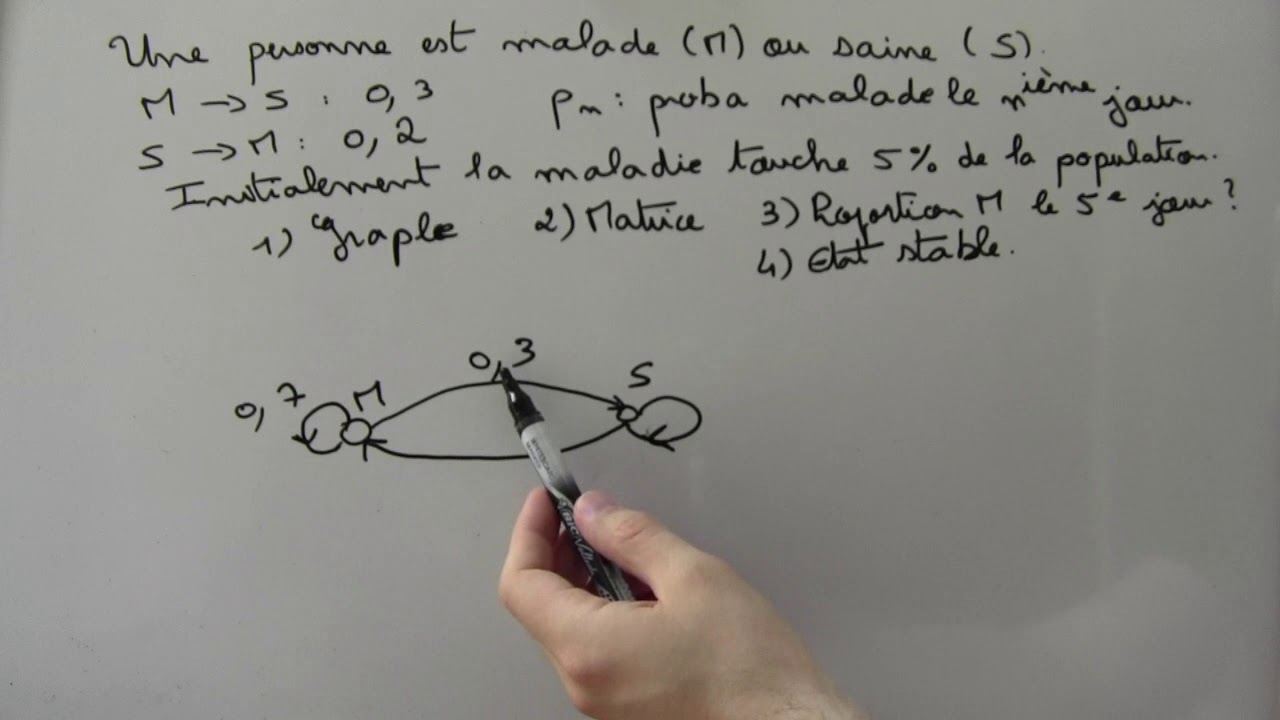 Une personne est malade (M) ou saine (S).
M → S : 0,3 pn : proba malade le nième jour.
S → M : 0,2
Initialement la maladie touche 5% de la population.
1) Graphe 2) Matrice 3) Proportion M le 5e jour ?
4) Etat stable.
0,3
S
0,7 M